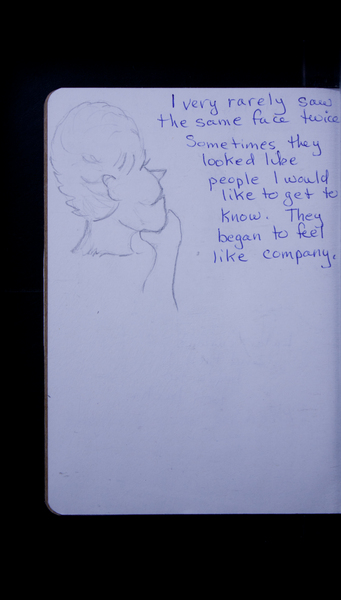 I very rarely saw
the same face twice
Sometimes they
looked like
people I would
like to get to
know. They
began to feel
like company.